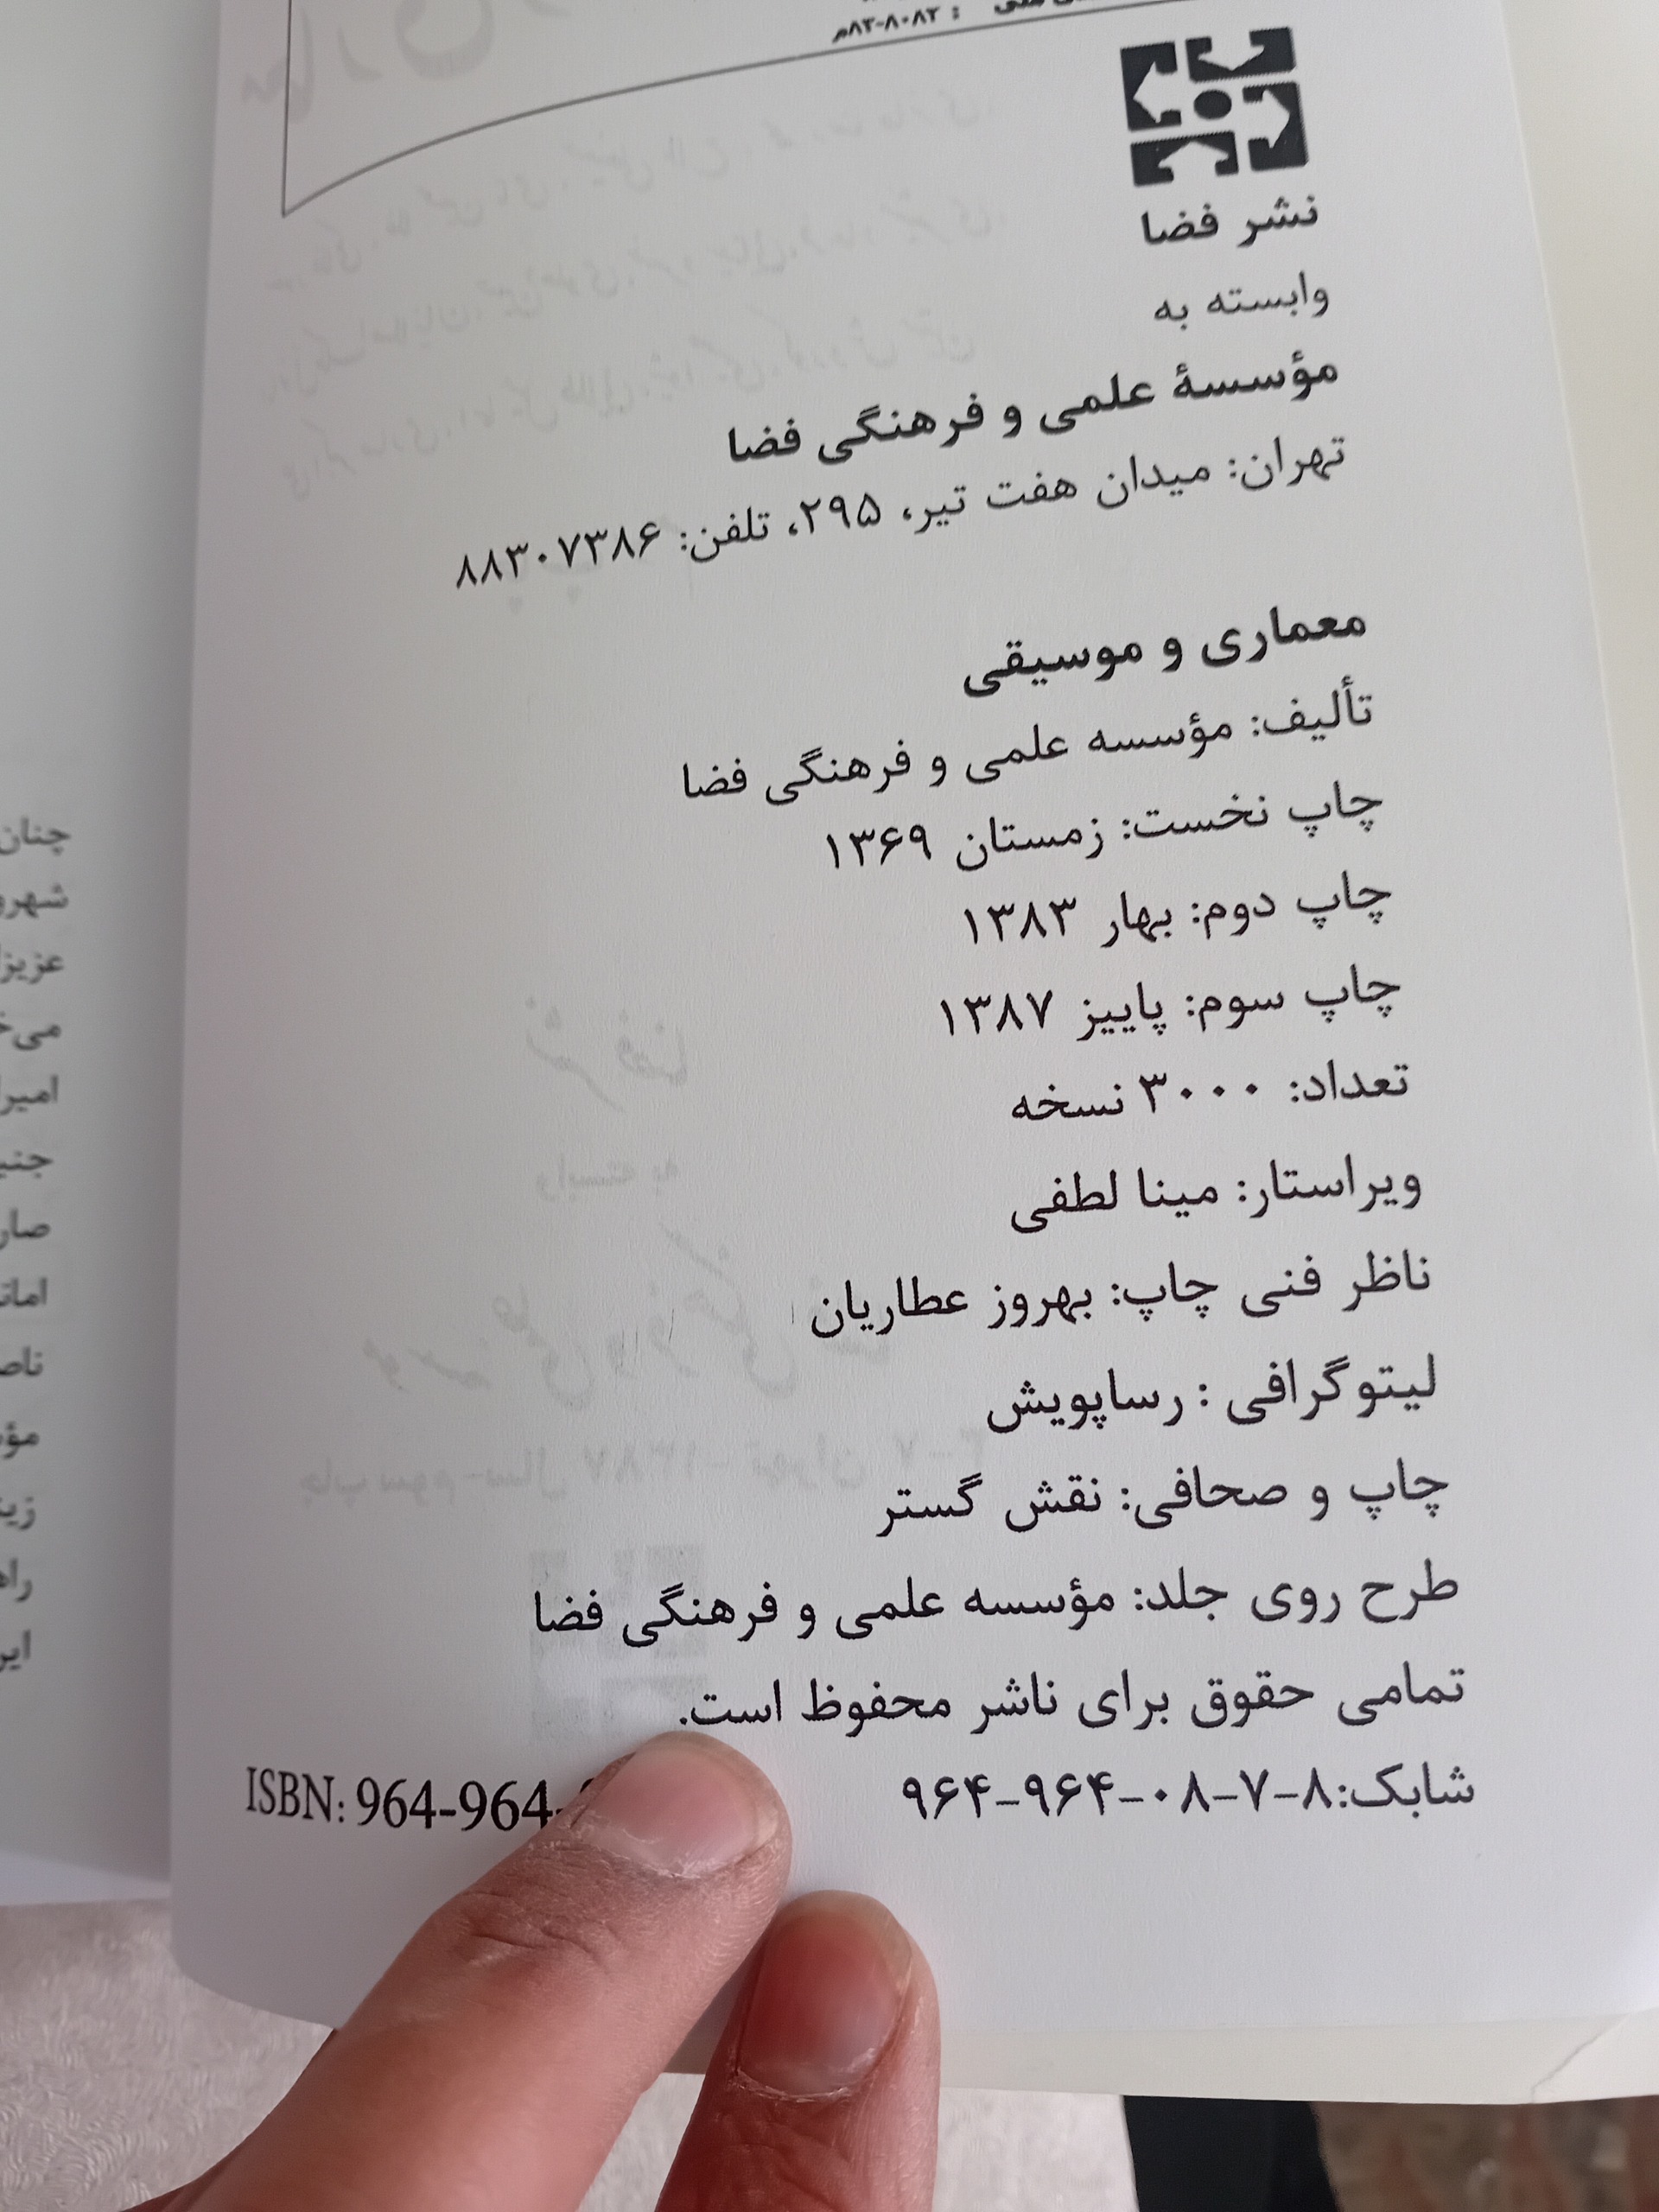 : ۸۰۸۲-۸۳م
نشر فضا
وابسته به
مؤسسهٔ علمی و فرهنگی فضا
تهران: میدان هفت تیر، ۲۹۵، تلفن: ۸۸۳۰۷۳۸۶
معماری و موسیقی
تألیف: مؤسسه علمی و فرهنگی فضا
چاپ نخست: زمستان ۱۳۶۹
چاپ دوم: بهار ۱۳۸۳
چاپ سوم: پاییز ۱۳۸۷
تعداد: ۳۰۰۰ نسخه
ویراستار: مینا لطفی
ناظر فنی چاپ: بهروز عطاریان
لیتوگرافی : رساپویش
چاپ و صحافی: نقش گستر
طرح روی جلد: مؤسسه علمی و فرهنگی فضا
تمامی حقوق برای ناشر محفوظ است.
شابک:۸-۷-۰۸-۹۶۴-۹۶۴
ISBN: 964-964-
چنان